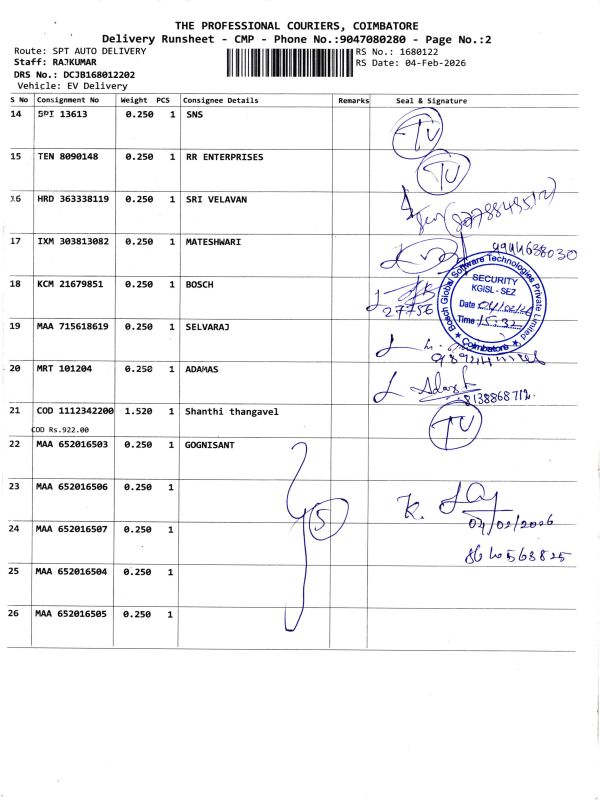 THE PROFESSIONAL COURIERS, COIMBATORE
Delivery Runsheet - CMP - Phone No.:9047080280 - Page No.:2
Route: SPT AUTO DELIVERY
RS No.: 1680122
Staff: RAJKUMAR
RS Date: 04-Feb-2026
DRS No.: DCJB168012202
Vehicle: EV Delivery
S No Consignment No Weight PCS Consignee Details Remarks Seal & Signature
14 SPI 13613 0.250 1 SNS TU
15 TEN 8090148 0.250 1 RR ENTERPRISES TU
16 HRD 363338119 0.250 1 SRI VELAVAN
17 IXM 303813082 0.250 1 MATESHWARI 9944638030
18 KCM 21679851 0.250 1 BOSCH 27756
Bosch Global Software Technologies Private Limited
SECURITY
KGISL - SEZ
Date
Time 15:32
Coimbatore
19 MAA 715618619 0.250 1 SELVARAJ
20 MRT 101204 0.250 1 ADAMAS
8138868712
21 COD 1112342200 1.520 1 Shanthi thangavel TU
COD Rs.922.00
22 MAA 652016503 0.250 1 GOGNISANT
23 MAA 652016506 0.250 1 5 K.
04/02/2026
24 MAA 652016507 0.250 1
25 MAA 652016504 0.250 1
26 MAA 652016505 0.250 1